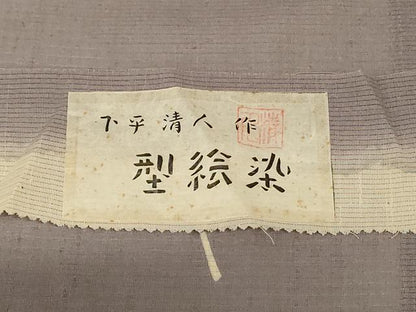 下平清人 作
型絵染